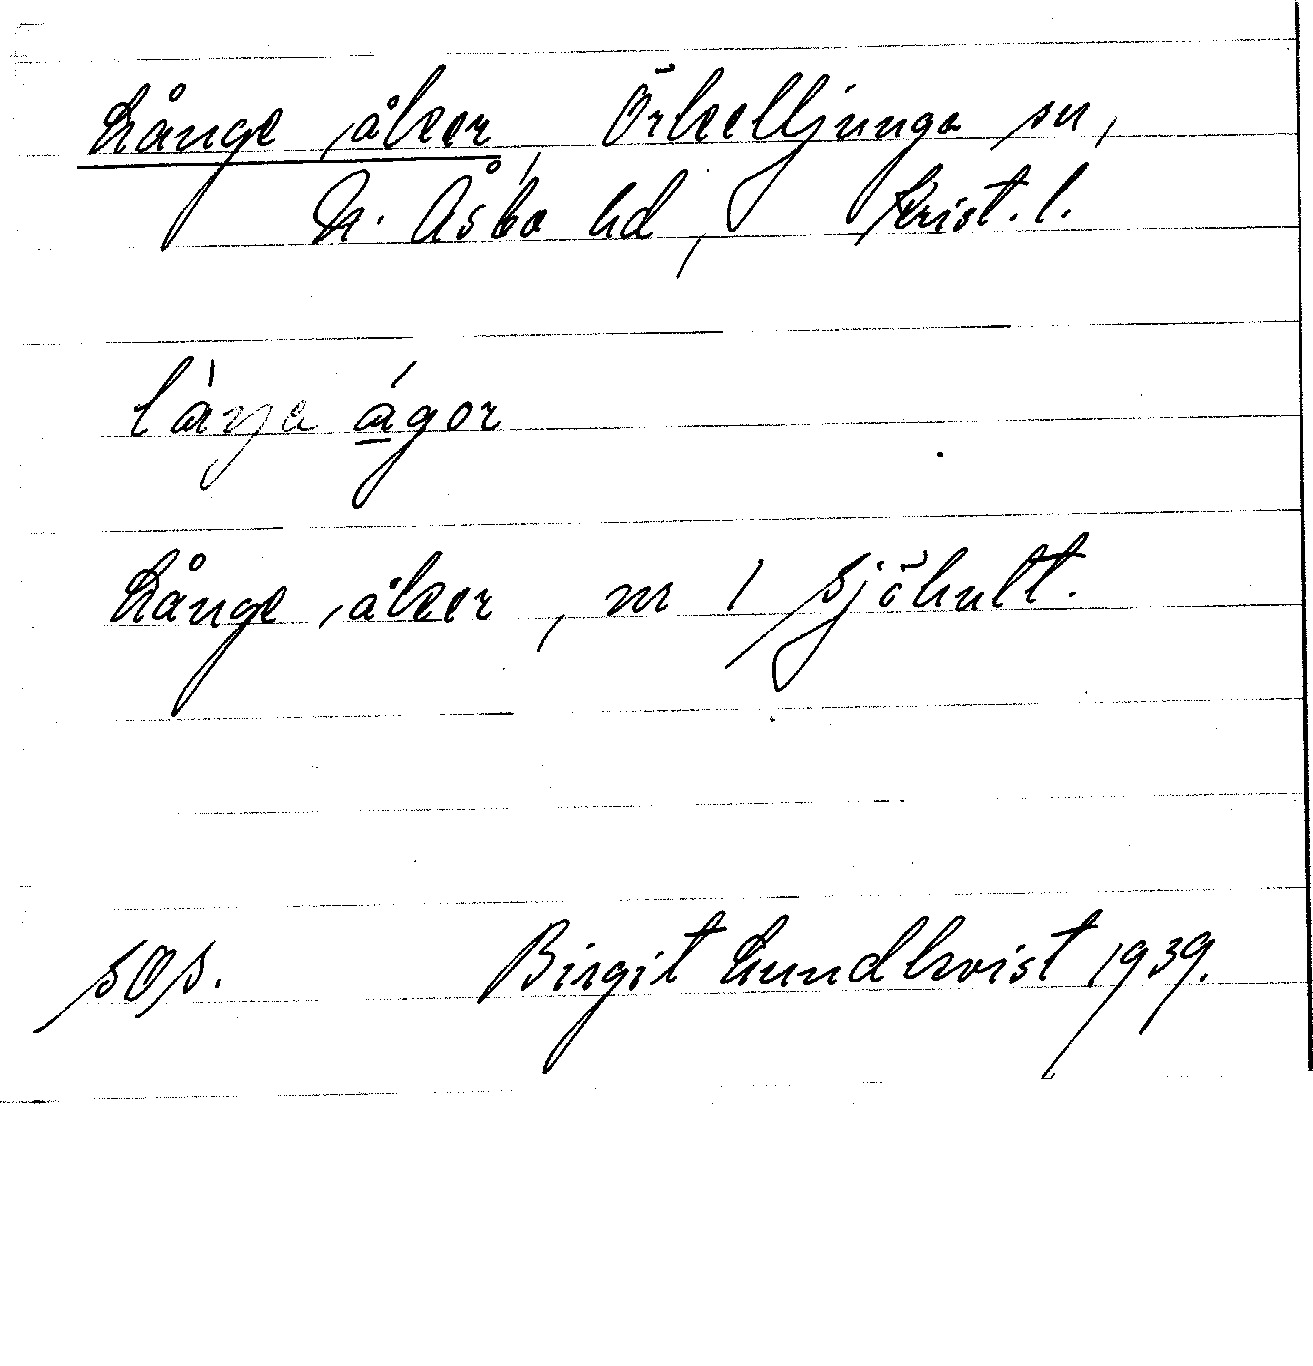 Långe åker, Örkelljunga sn,
N. Åsbo hd, Krist. l.
làŋa ágor
Långe åker, nr 1 Sjöhult.
sOs. Birgit Lundkvist 1939.